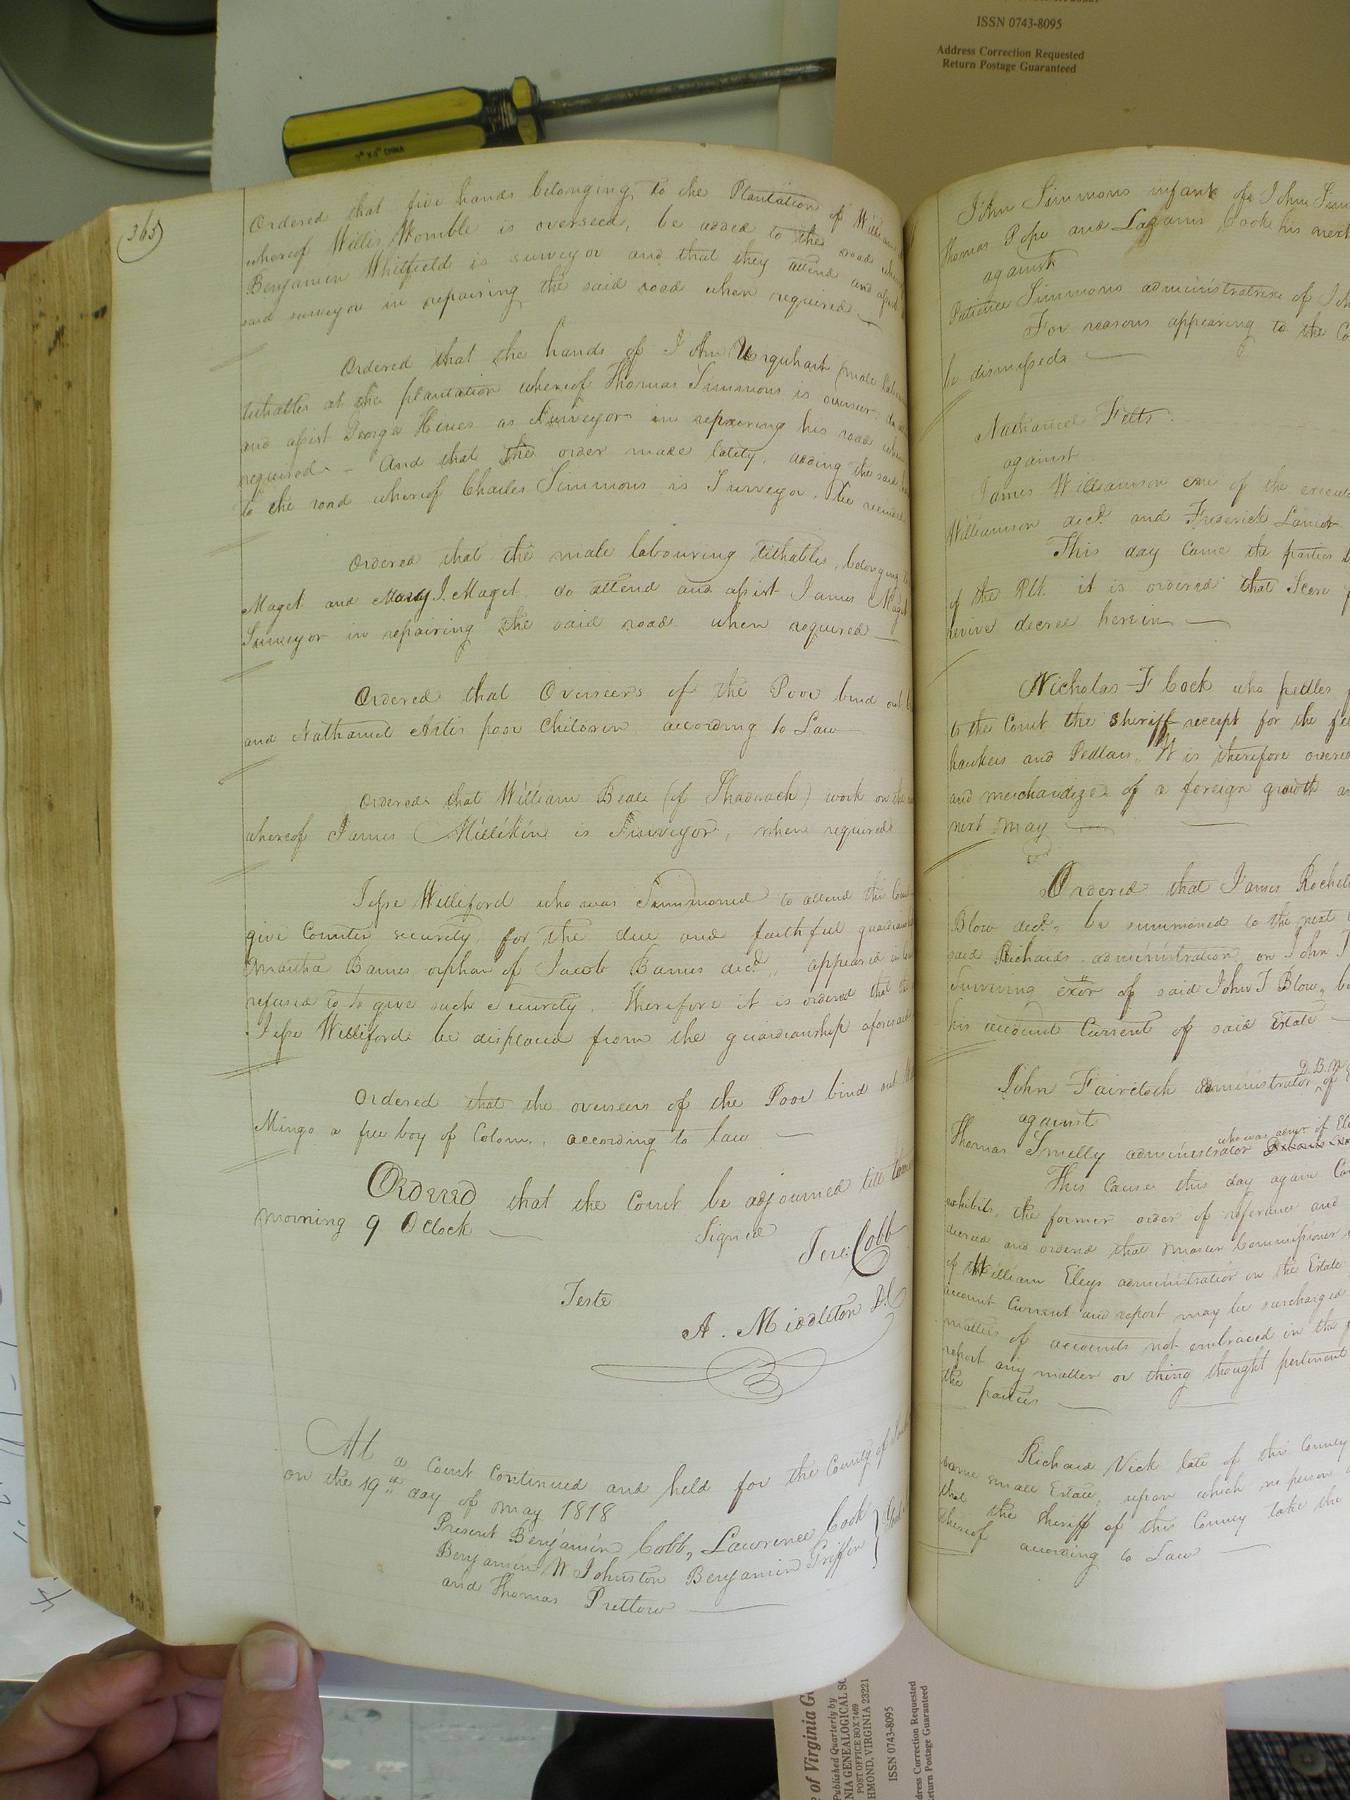 ISSN 0743-8095
Address Correction Requested
Return Postage Guaranteed
7" X 5" CHINA
365
Ordered that five hands belonging to the Plantation of William
whereof Willis Womble is overseer, be added to the road
Benjamin Whitfield is surveyor and that they attend and assist
said surveyor in repairing the said road when required
Ordered that the hands of John Urquhart (male
tithables at the plantation whereof Thomas Simmons is overseer, do
and assist George Hines as Surveyor in repairing his road when
required - And that the order made lately, adding the said
to the road whereof Charles Simmons is Surveyor, be
Ordered that the male labouring tithables, belonging
Maget and Mary J. Maget do attend and assist James Maget
Surveyor in repairing the said road when required
Ordered that Overseers of the Poor bind out
and Nathaniel Artis poor Children according to Law
Ordered that William Beale (of Shadrach) work on the
whereof James Millikin is Surveyor, when required
Jesse Williford who was Summoned to attend this Court
give Counter security for the due and faithful
Martha Barnes orphan of Jacob Barnes decd., appeared
refused to to give such Security. Therefore it is ordered that the
Jesse Williford be displaced from the guardianship aforesaid
Ordered that the overseers of the Poor bind out
Mingo a free boy of Colour, according to law
Ordered that the Court be adjourned till
morning 9 OClock
Signed
Jere: Cobb
Teste
A. Middleton
At a Court Continued and held for the County of
on the 19th day of May 1818
Present Benjamin Cobb, Lawrence Cook
Benjamin W Johnston Benjamin Griffin
and Thomas Pretlow
John Simmons infant of John
Thomas Pope and Cook his next
against
Patience Simmons administratrix of
For reasons appearing to the
be dismissed
Nathaniel Felts
against
James Williamson one of the
Williamson decd. and Frederick Lanier
This day Came the parties
of the Plt. it is ordered that Scere
revive decree herein
Nicholas F Cock who peddles
to the Court the Sheriff receipt for the
hawkers and Pedlars. It is therefore
and merchandize of a foreign growth
next May
Ordered that James
Blow decd. be summoned to the next
said Richards administration on John
surviving exor of said John T Blow,
his account Current of said Estate
John Faircloth administrator D.B.N of
against
Thomas Smelly administrator who was admr. of
This Cause this day again
exhibits, the former order of reference and
decreed and ordered that Master Commissioner
of William Eleys administration on the Estate
account Current and report may be surcharged
matters of accounts not embraced in the
report any matter or thing thought pertinent
the parties
Richard Vick late of this County
some small Estate, upon which no person
that the Sheriff of this County take the
thereof according to Law
of Virginia
Published Quarterly by
POST OFFICE BOX 7469
VIRGINIA 23221
ISSN 0743-8095
Return Postage Guaranteed